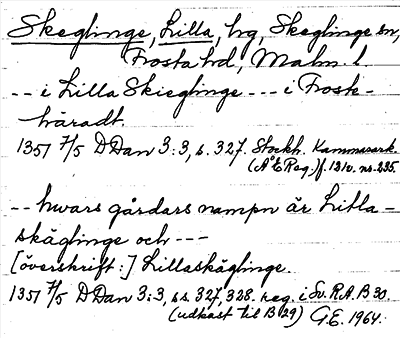 Skeglinge, Lilla, hg, Skeglinge sn,
Frosta hd, Malm. l.
-- i Lilla Skieglinge --- i Frost-
häradt.
1351 7/5 DDan 3:3, s. 327. Stockh. Kammarark.
(Å Æ Reg.) f. 131v. nr 235.
-- hwars gårdars nampn är Litla-
skäglinge och ---
[överskrift:] Lillaskäglinge.
1351 7/5 DDan 3:3, ss. 327, 328. reg. i Sv. R.A. B 30.
(udkast til B 29) G.E. 1964.